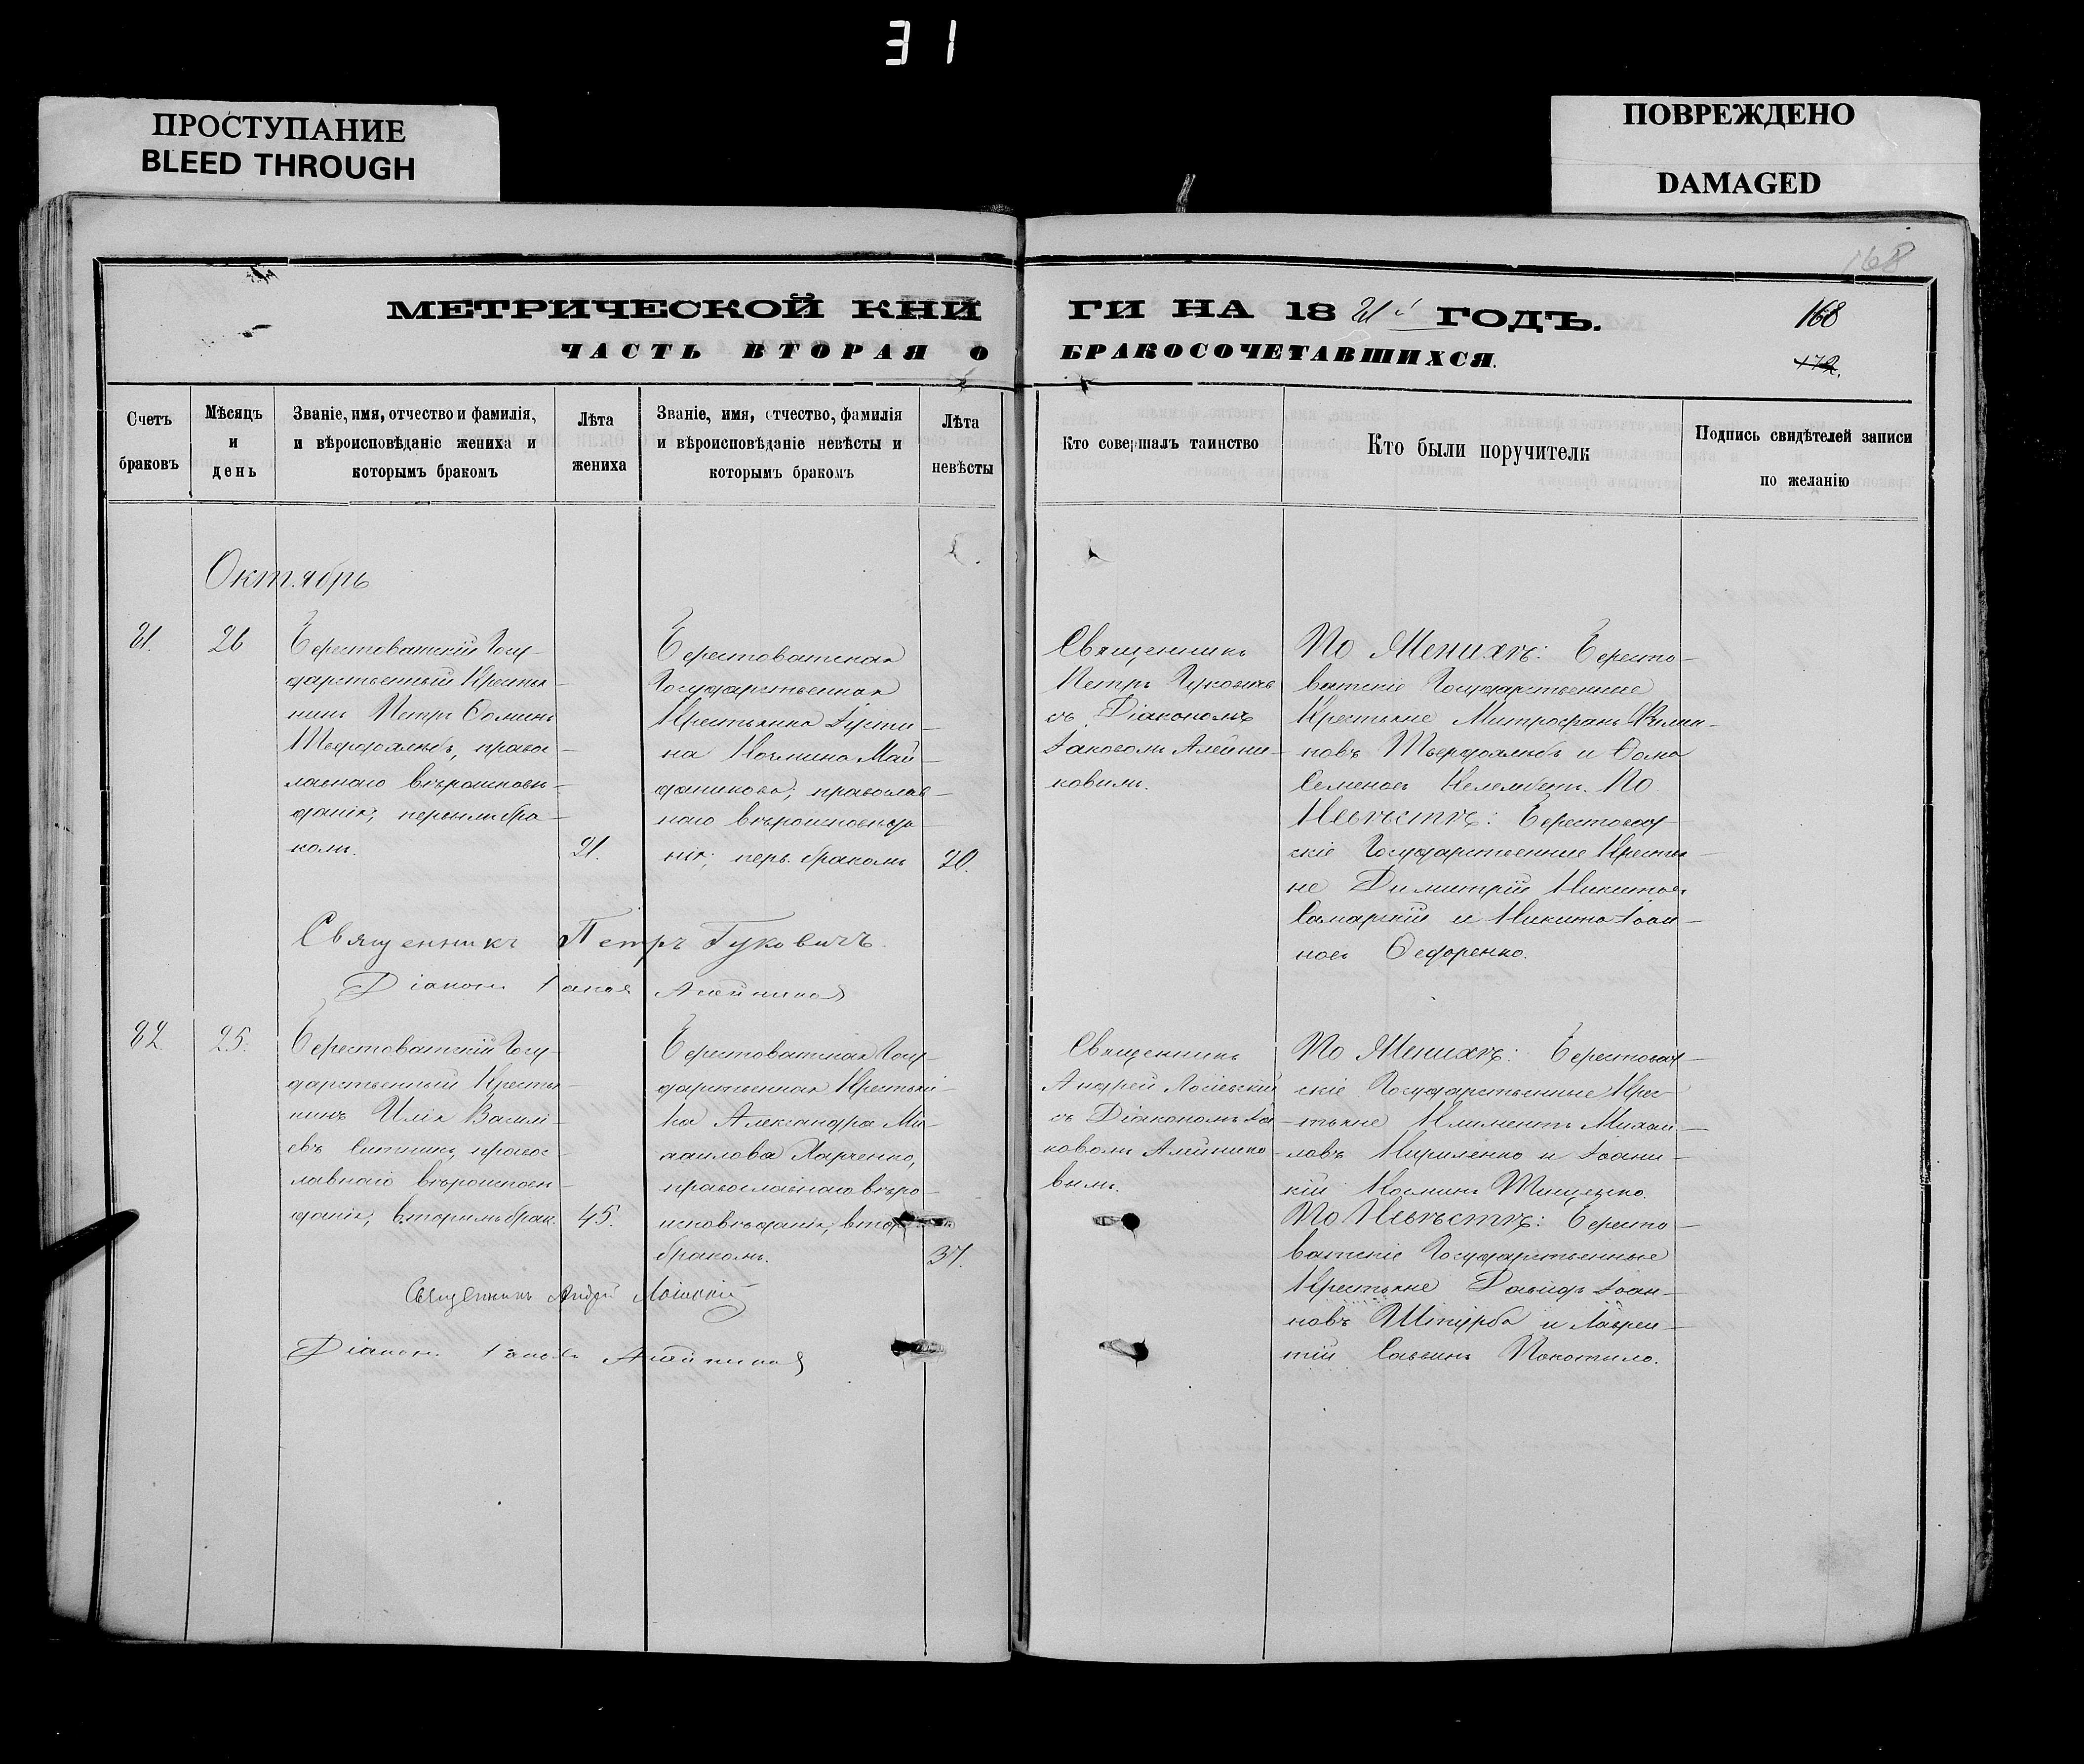 31
ПРОСТУПАНИЕ
BLEED THROUGH
ПОВРЕЖДЕНО
DAMAGED
168
МЕТРИЧЕСКОЙ КНИ
ГИ НА 18 ГОДЪ.
168
172.
ЧАСТЬ ВТОРАЯ О
БРАКОСОЧЕТАВШИХСЯ.
Счетъ
браковъ
Мѣсяцъ
и
день
Званіе, имя, отчество и фамилія,
и вѣроисповѣданіе жениха и
которымъ бракомъ
Лѣта
жениха
Званіе, имя, отчество, фамилія
и вѣроисповѣданіе невѣсты и
которымъ бракомъ
Лѣта
невѣсты
Кто совершалъ таинство
Кто были поручители
Подпись свидѣтелей записи
по желанію
Октябрь
26
Берестоватскій Госу-
дарственный Кресть-
нинъ Петръ Ѳоминъ
правос-
лавнаго вѣроисповѣ-
данія; первымъ бра-
комъ.
21.
Берестоватская
Государственная
Крестьянка Іусти-
на Козмина Май-
даникова; православ-
наго вѣроисповѣда-
нія; перв. бракомъ
20.
Священникъ
Петръ Гуковичъ
съ Діакономъ
Іаковомъ Алейни-
ковымъ.
По Женихѣ: Бересто-
ватскіе Государственные
Крестьяне Митрофанъ
новъ и Ѳома
Семеновъ По
Невѣстѣ: Берестоват-
скіе Государственные Крестья-
не Димитрій Никитовъ
Самарскій и Никита Іоан-
новъ Ѳедоренко.
Священникъ Петръ Гуковичъ.
Діаконъ Іаковъ Алейниковъ
25.
Берестоватскій Госу-
дарственный Кресть-
нинъ Илія Васил-
евъ Ситникъ, правос-
лавнаго вѣроисповѣ-
данія; вторымъ брак.
45.
Берестоватская Госу-
дарственная Крестьян-
ка Александра Ми-
хаилова Харченко,
православнаго вѣро-
исповѣданія;
бракомъ.
37.
Священникъ
Андрей
съ Діакономъ Іа-
ковомъ Алейнико-
вымъ.
По Женихѣ: Берестоват-
скіе Государственные Крес-
тьяне Климентъ Михаи-
ловъ Кириленко и Іоани-
кій Козминъ Тищенко.
По Невѣстѣ: Бересто-
ватскіе Государственные
Крестьяне Давидъ Іоан-
новъ и Лаврен-
тій Саввинъ Покотило.
Священникъ Андрей
Діаконъ Іаковъ Алейниковъ